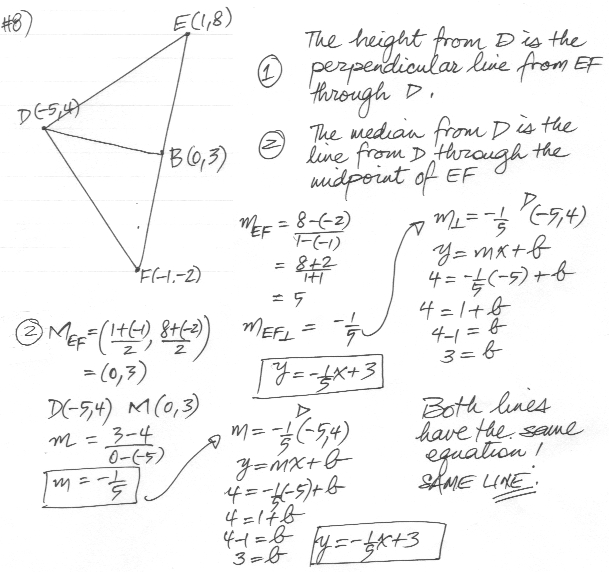 #8)
E(1,8)
D(-5,4)
B(0,3)
F(-1,-2)
① The height from D is the
perpendicular line from EF
through D.
② The median from D is the
line from D through the
midpoint of EF
m_EF = 8-(-2)/1-(-1)
= 8+2/1+1
= 5
m_EF⊥ = -1/5
m⊥ = -1/5 D(-5,4)
y = mx + b
4 = -1/5(-5) + b
4 = 1 + b
4-1 = b
3 = b
y = -1/5x + 3
② M_EF = (1+(-1)/2, 8+(-2)/2)
= (0,3)
D(-5,4) M(0,3)
m = 3-4/0-(-5)
m = -1/5
m = -1/5 D(-5,4)
y = mx + b
4 = -1/5(-5) + b
4 = 1 + b
4-1 = b
3 = b
y = -1/5x + 3
Both lines
have the same
equation!
SAME LINE!